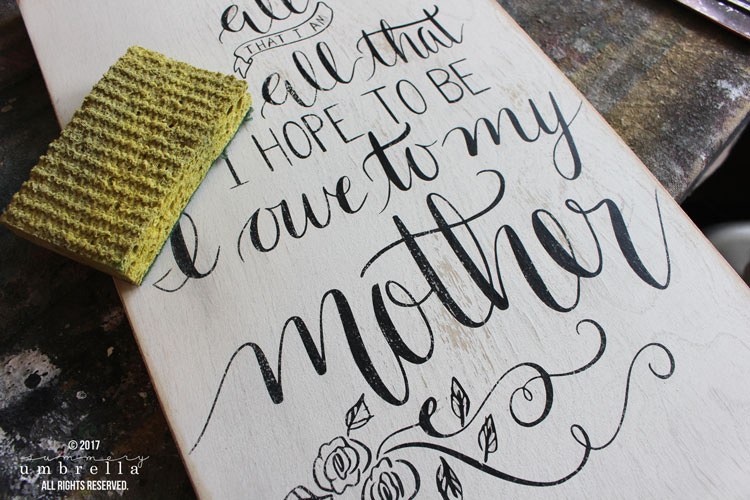 all
THAT I AM
all that
I HOPE TO BE
I owe to my
mother
© 2017
summery
umbrella
ALL RIGHTS RESERVED.